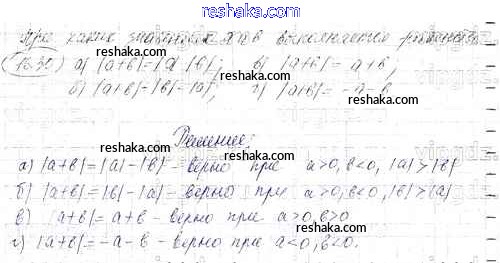 reshaka.com
При каких значениях а и в выполняется равенство
16.30 а) |а+в|=|а|-|в|; в) |а+в|=а+в;
б) |а+в|=|в|-|а|; г) |а+в|=-а-в
reshaka.com
Решение:
а) |а+в|=|а|-|в| - верно при а>0, в<0, |а|>|в|
б) |а+в|=|в|-|а| - верно при а>0, в<0, |в|>|а|
в) |а+в|=а+в - верно при а>0, в>0
г) |а+в|=-а-в - верно при а<0, в<0.
reshaka.com